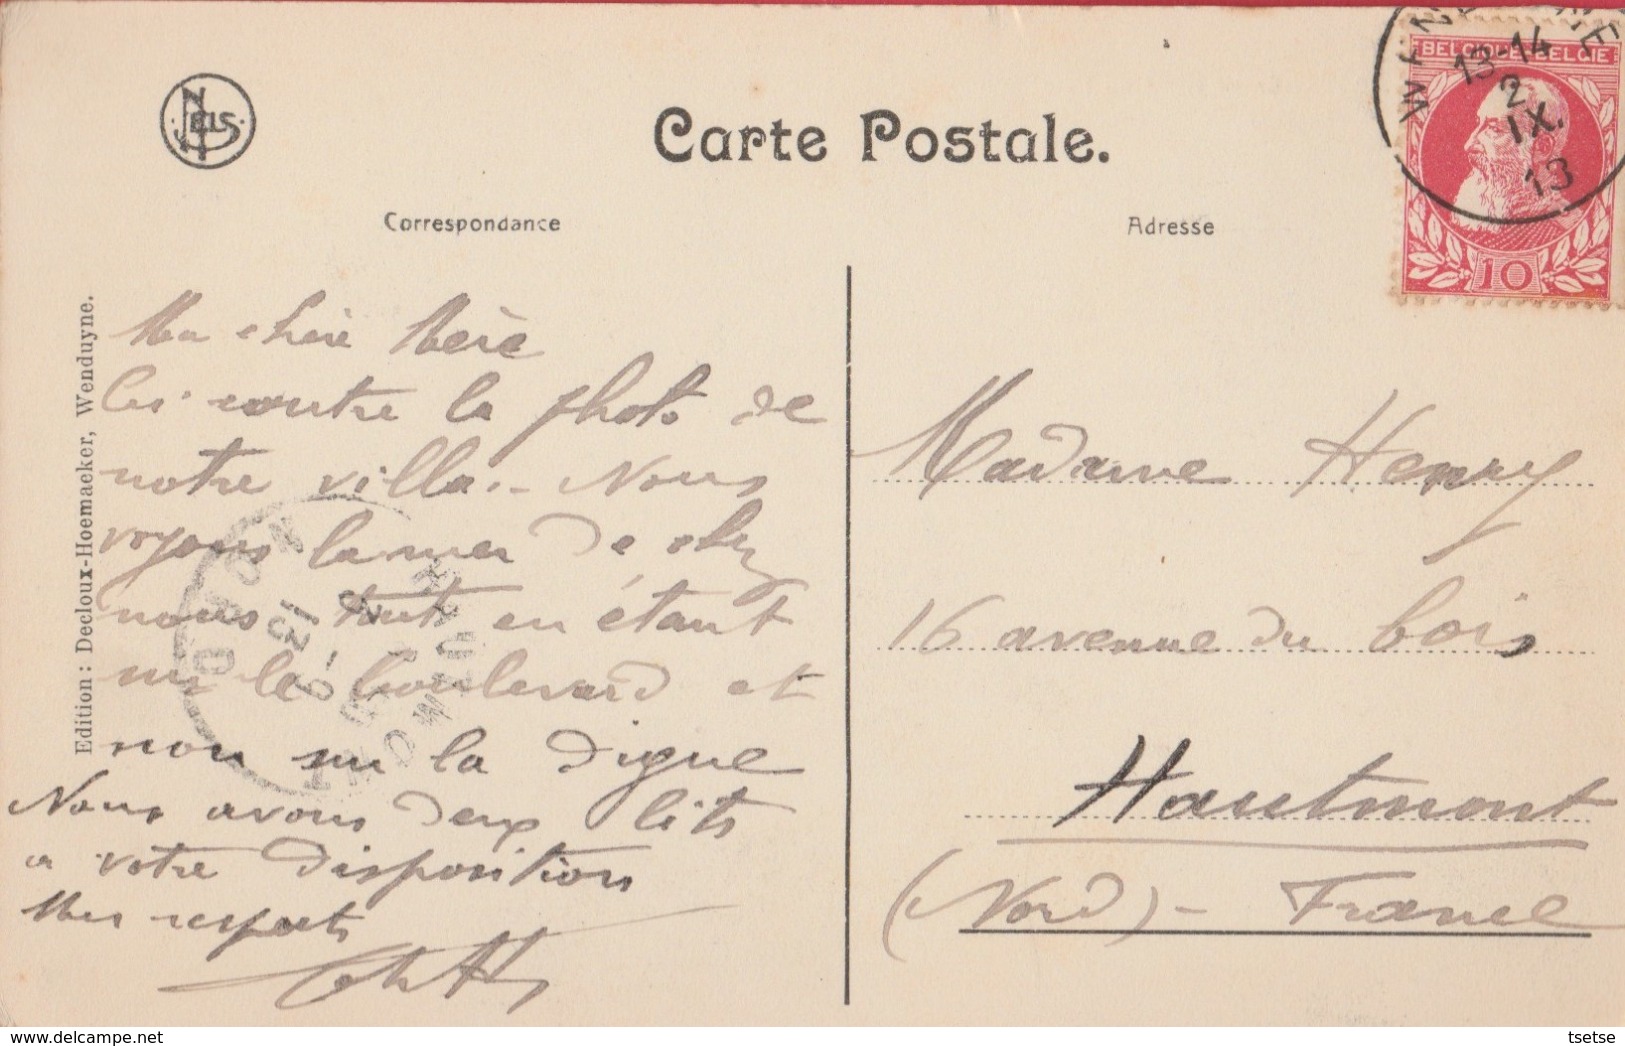 Nels
Carte Postale.
Correspondance
Adresse
BELGIQUE-BELGIE
13-14
2
IX.
13
10
Edition : Decloux-Hoemaeker, Wenduyne.
Ma chère Mère
Ci-contre la photo de
notre villa.- Nous
voyons la mer de chez
nous tout en étant
sur le boulevard et
non sur la digue
Nous avons deux lits
a votre disposition
Mes respects
Madame Henry
16 avenue du bois
Hautmont
(Nord) - France
HAUTMONT
NORD
delcampe.net
tsetse